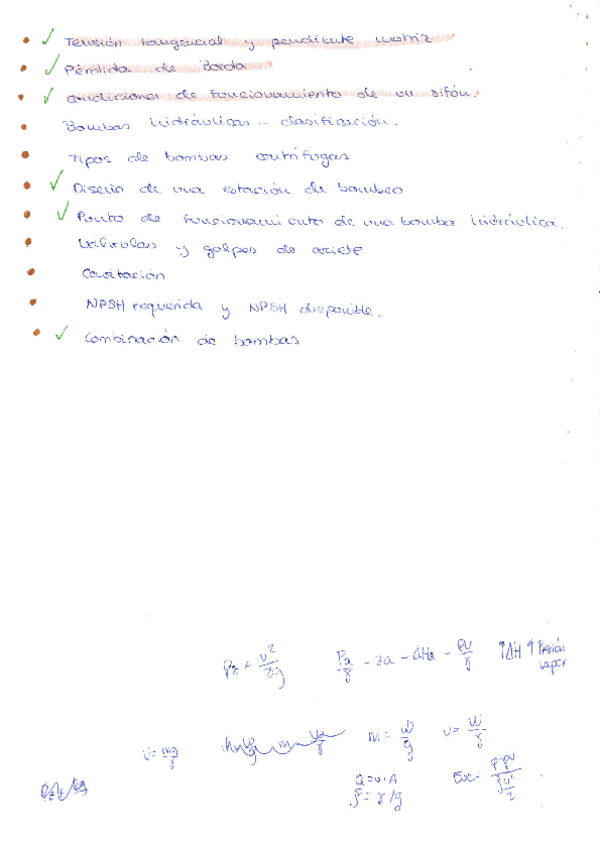 • ✓ Tensión tangencial y pendiente motriz
• ✓ Pérdida de Borda
• ✓ Condiciones de funcionamiento de un sifón.
• Bombas hidráulicas - clasificación.
• Tipos de bombas centrífugas
• ✓ Diseño de una estación de bombeo
• ✓ Punto de funcionamiento de una bomba hidráulica.
• Válvulas y golpes de ariete
• Cavitación
• NPSH requerida y NPSH disponible.
• ✓ Combinación de bombas
v²/2g
Pa/γ - za - ΔHa - Pv/γ ↑ΔH ↑ Presión vapor
v = mg/γ m = W/g v = W/γ
Q = v·A
ρ = γ/g